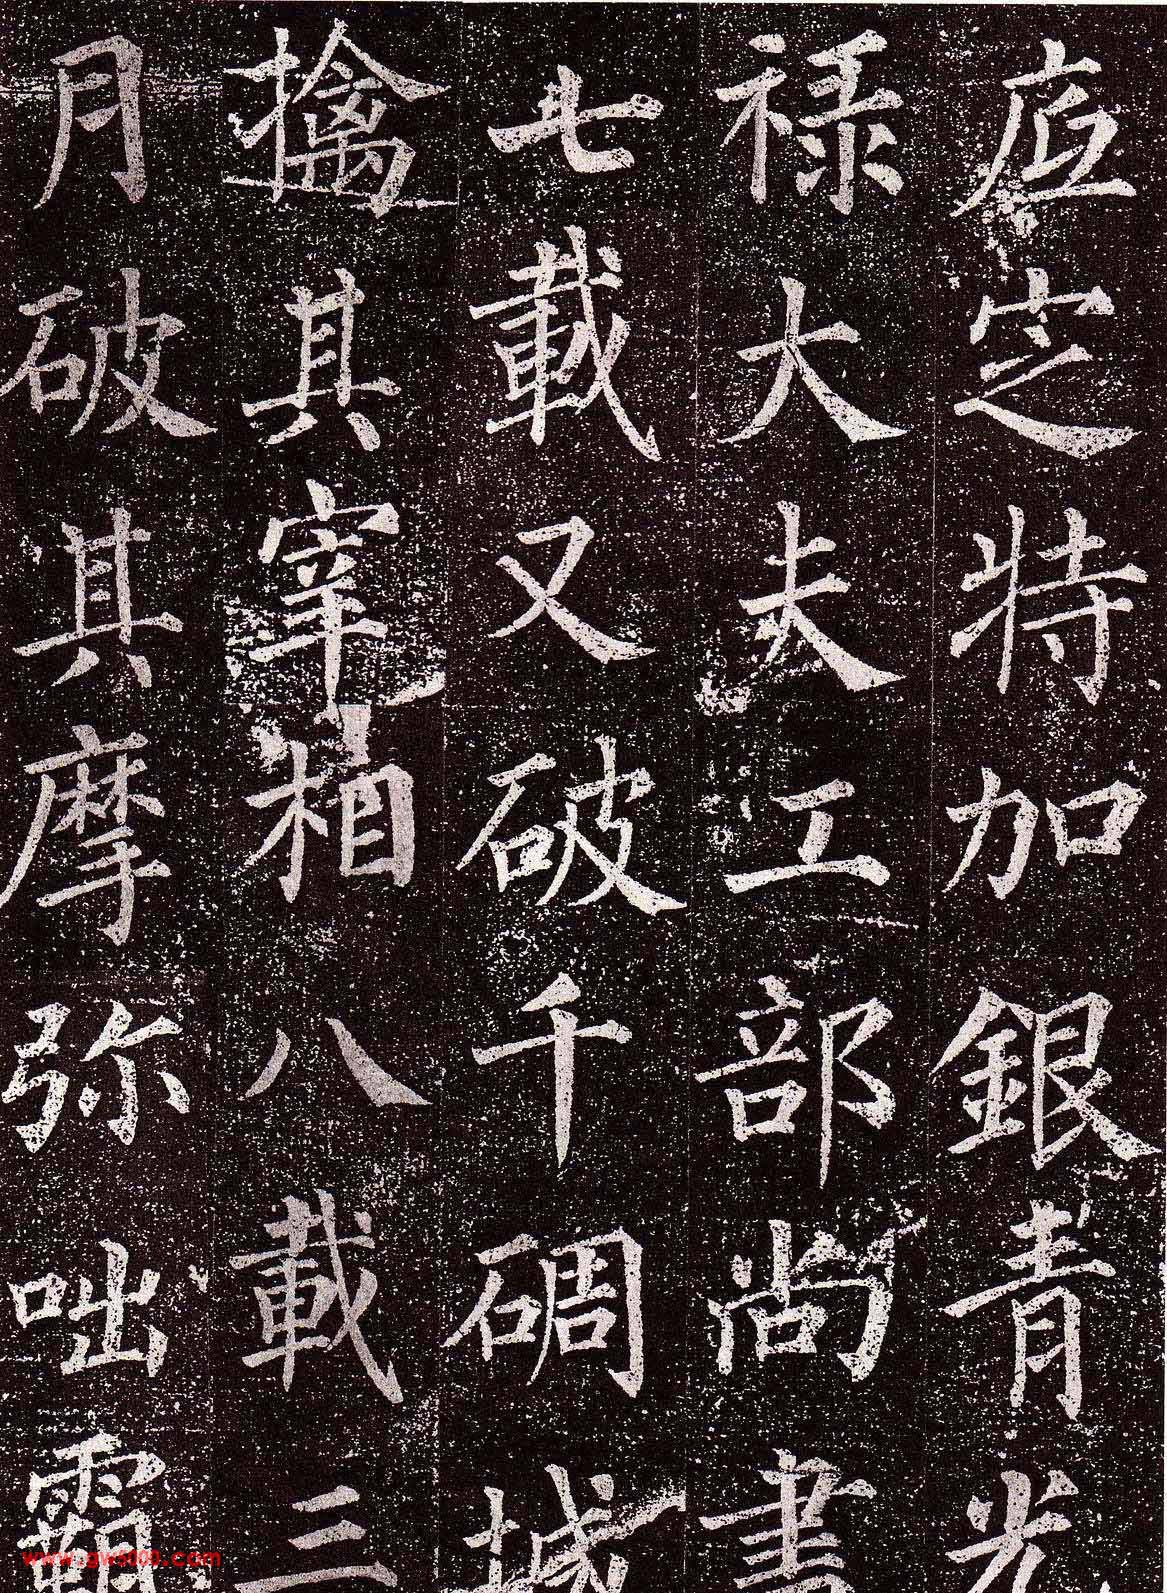 㝎特加銀青光
禄大夫工部尚書
七載又破千碉城
擒其宰相八載三
月破其摩弥咄霸
www.gw5000.com